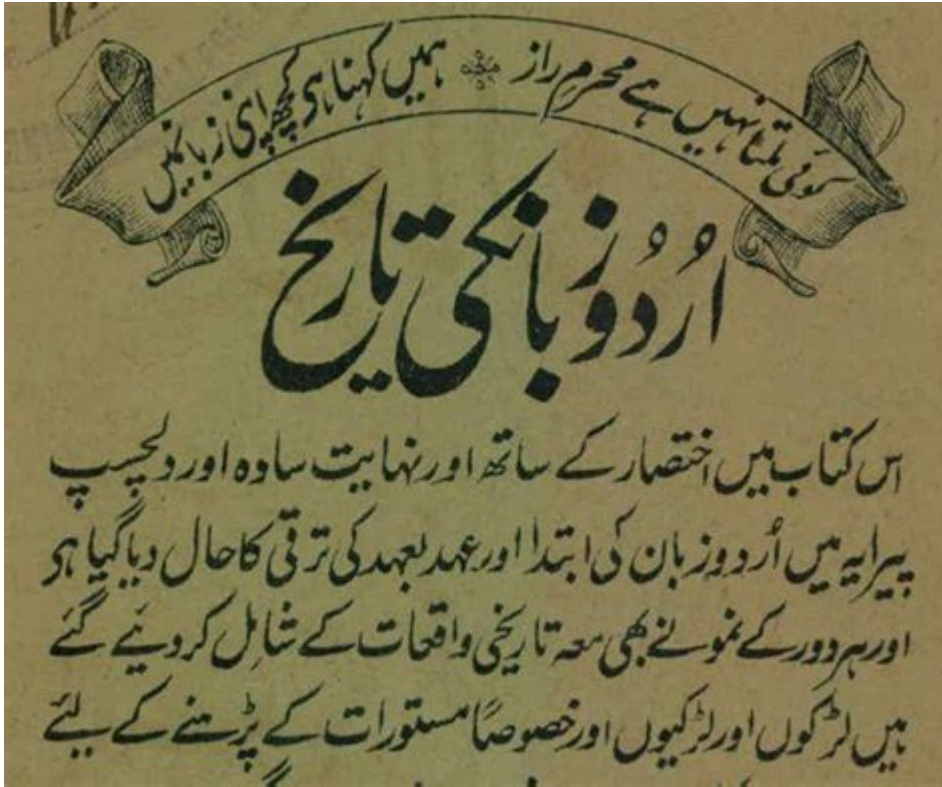 کوئی ملتا نہیں ہے محرمِ راز ہمیں کہنا ہی کچھ اپنی زبانمیں
اُردُو زبانکی تاریخ
اس کتاب میں اختصار کے ساتھ اور نہایت سادہ اور دلچسپ
پیرایہ میں اُردو زبان کی ابتدا اور عہد بعہد کی ترقی کا حال دیا گیا ہی
اور ہر دور کے نمونے بھی معہ تاریخی واقعات کے شامِل کر دیئے گئے
ہیں لڑکوں اور لڑکیوں اور خصوصاً مستورات کے پڑہنے کے لیئے